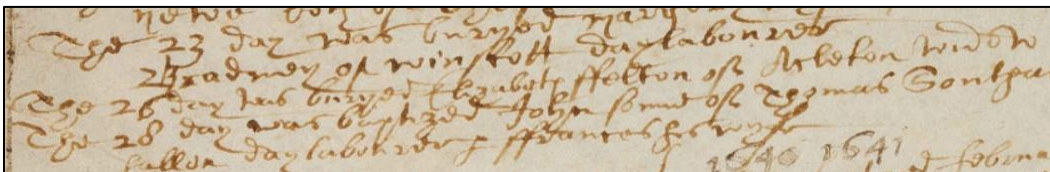 The 23 day was buryed Margery
Bradney of winscott daylabourer
The 26 day was buryed Elizabeth ffelton of Acleton widow
The 28 day was baptized John sonne of Thomas Southa
daylabourer & ffrances his wyfe
1640 1641